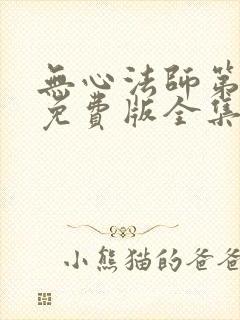 無心法師第
免費版全集
小熊猫的爸爸